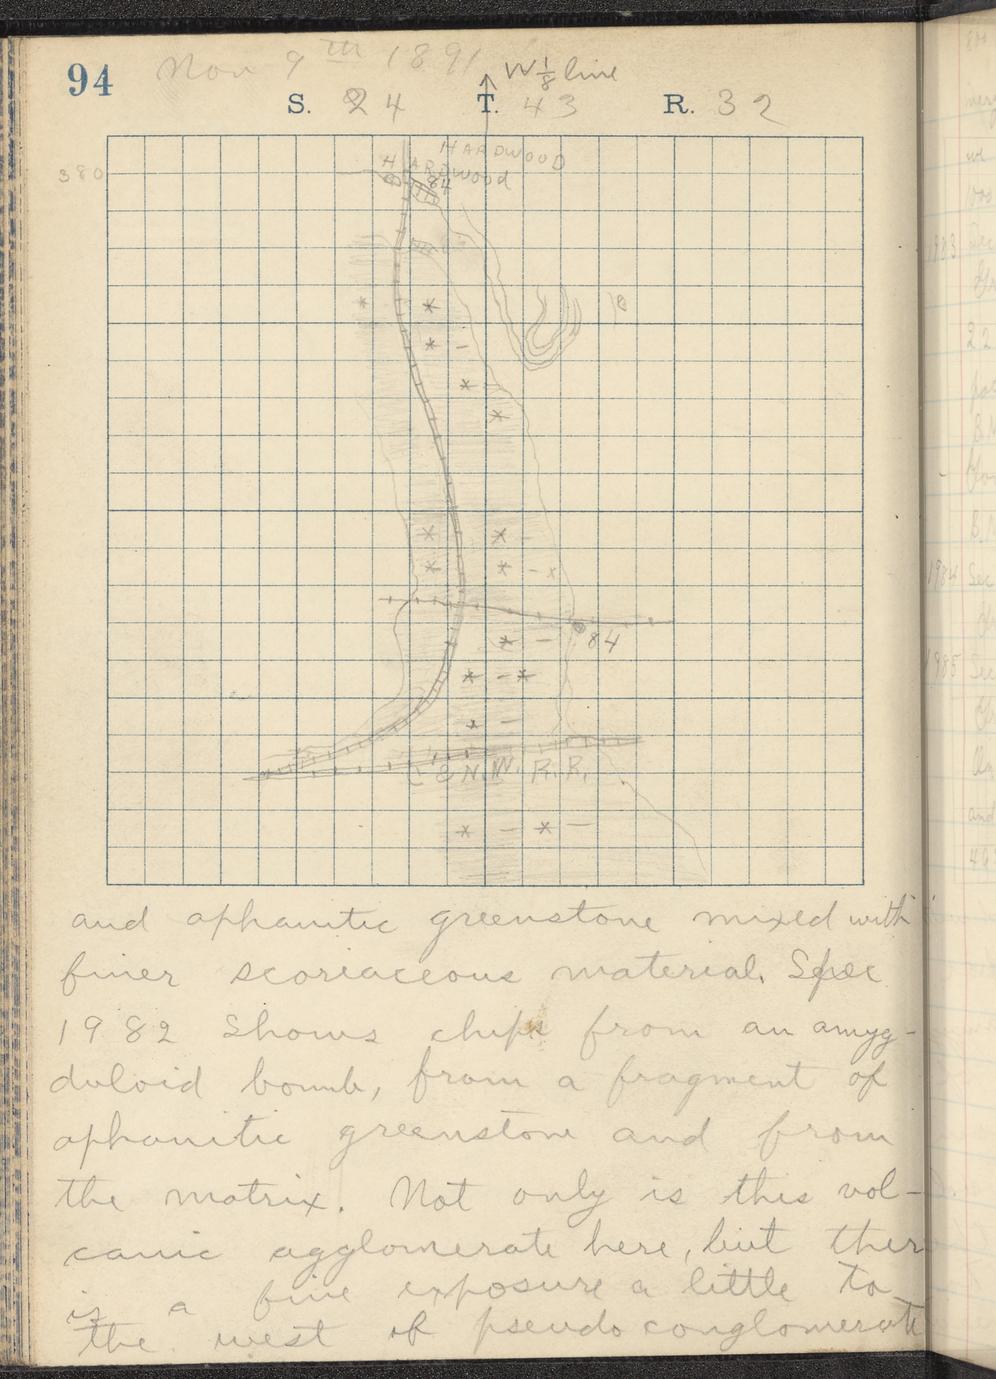 94 Nov 9th 1891 W 1/8 line
S. 24 T. 43 R. 32
380
HARDWOOD
HARDWOOD
84
84
C & N.W. R.R.
and aphanitic greenstone mixed with
finer scoriaceous material. Spec
1982 Shows chips from an amyg-
duloid bomb, from a fragment of
aphanitic greenstone and from
the matrix. Not only is this vol-
canic agglomerate here, but ther
is a fine exposure a little to
the west of pseudo conglomerate